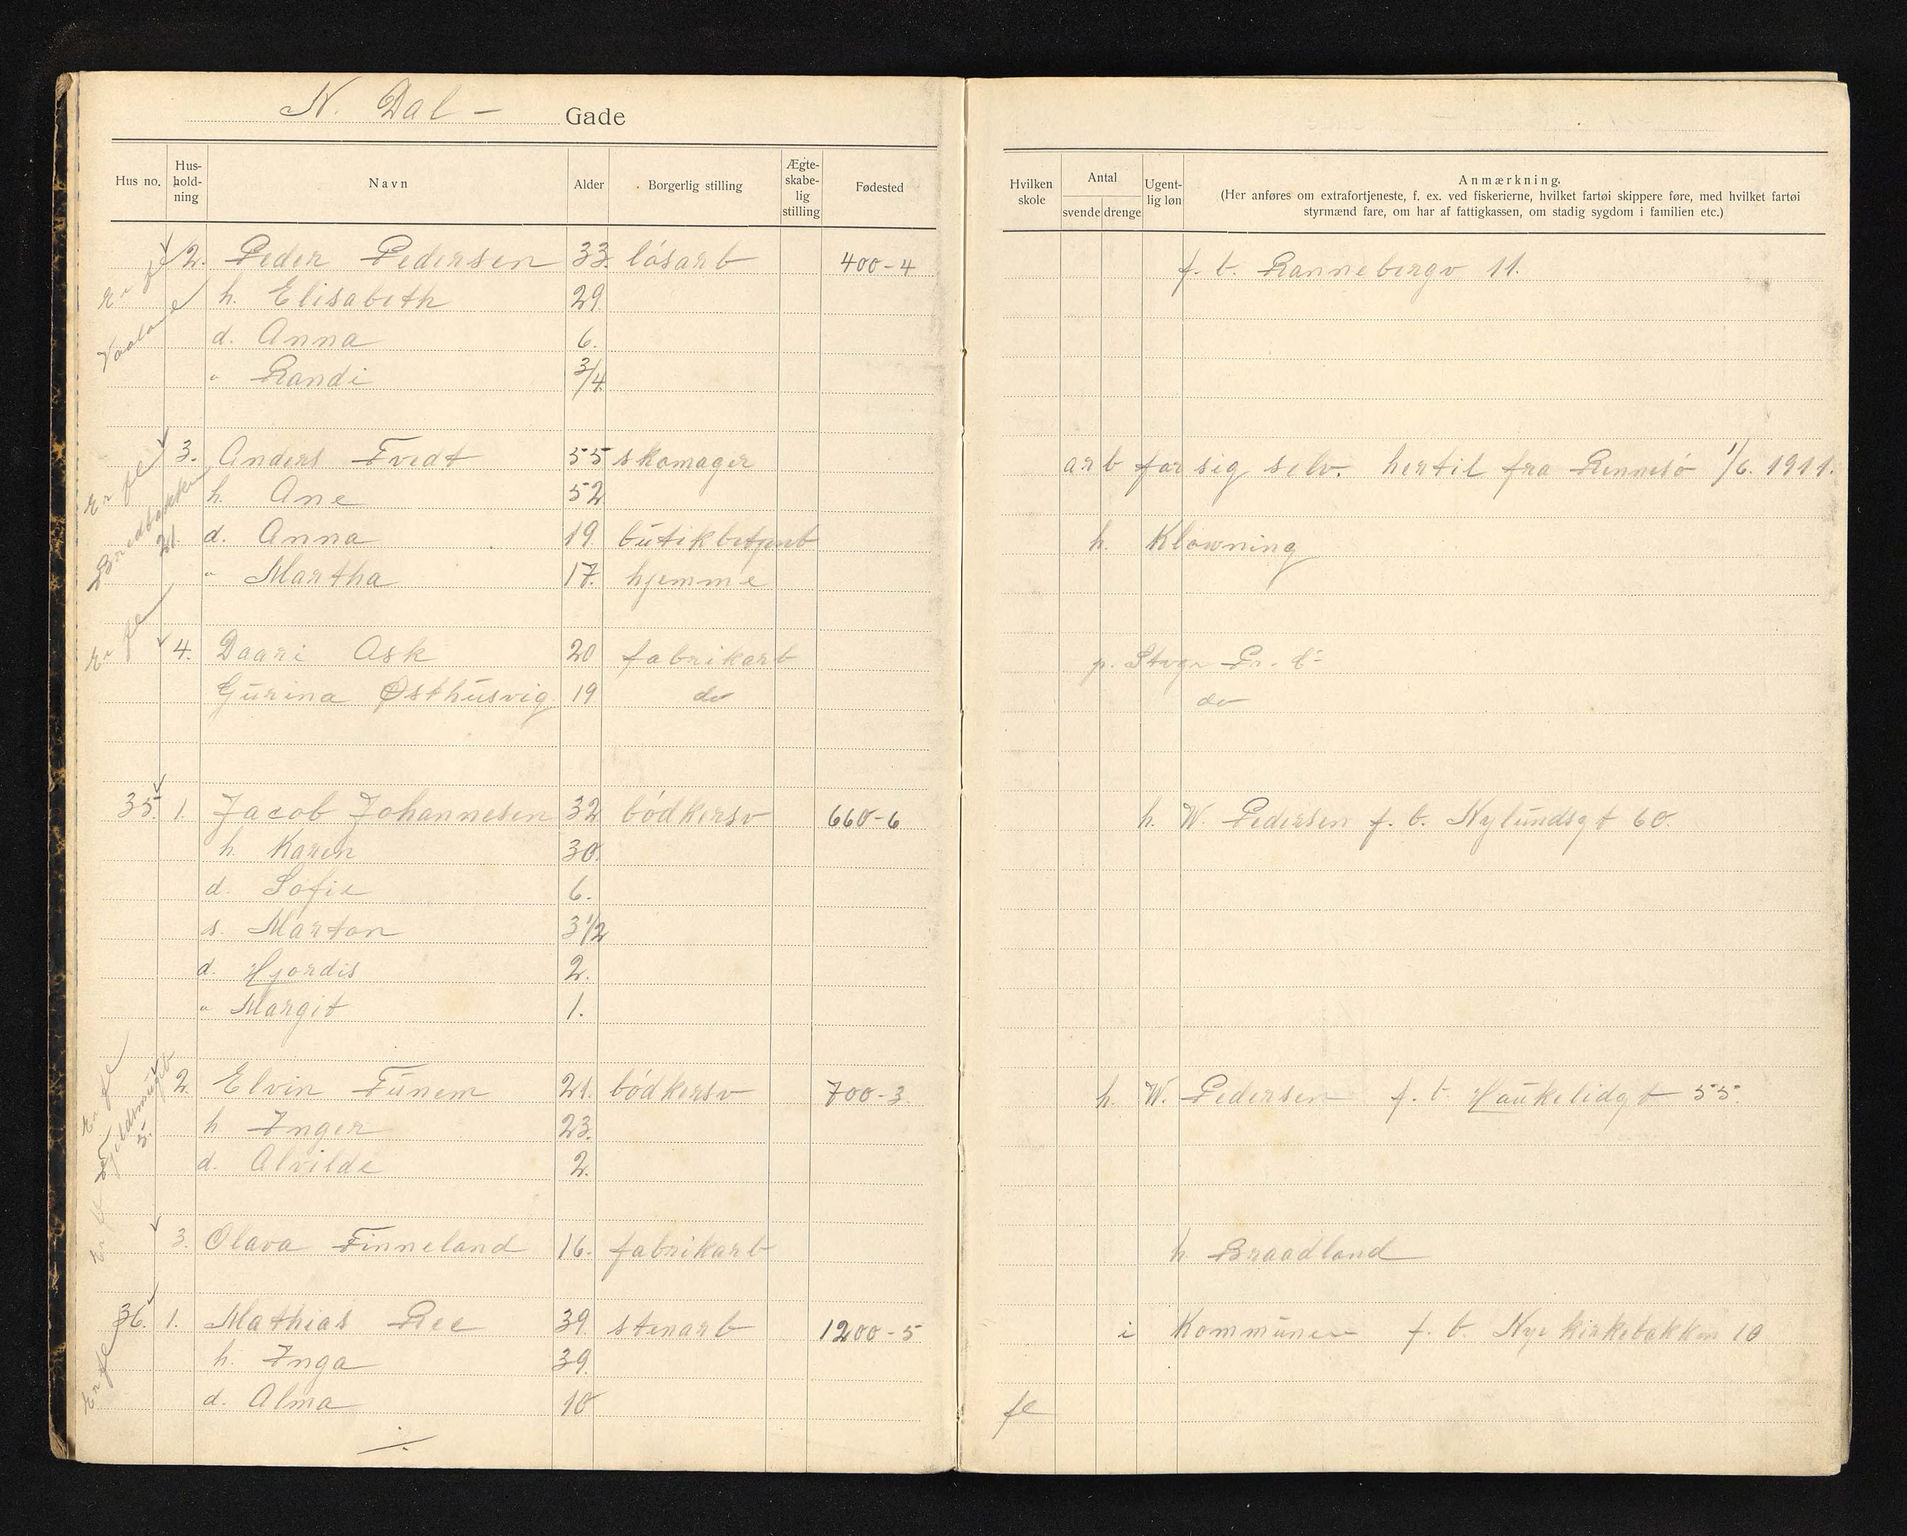 N. Dal - Gade
Hus no. Hus-holdning Navn Alder Borgerlig stilling Ægteskabelig stilling Fødested
Hvilken skole Antal svende drenge Ugentlig løn Anmærkning.
(Her anføres om extrafortjeneste, f. ex. ved fiskerierne, hvilket fartøi skippere føre, med hvilket fartøi
styrmænd fare, om har af fattigkassen, om stadig sygdom i familien etc.)
2. Peder Pedersen 33. løsarb 400-4 f. b. Rannebergv 11.
h. Elisabeth 29
d. Anna 6.
" Randi 3/4
Er fl
3. Anders Tvedt 55 skomager arb for sig selv. hertil fra Rennesö 1/6. 1911.
h. Ane 52
d. Anna 19. butikbetjent h. Klowning
" Martha 17. hjemme
Er fl Bredbakken 21.
4. Daari Ask 20 fabrikarb p. Stvgr Pr. C-
Gurina Østhusvig 19 do do
Er fl
35. 1. Jacob Johannesen 32 bødkersv 660-6 h. W. Pedersen f. b. Nylundsgt 60.
h. Karen 30.
d. Sofie 6.
s. Marton 3 1/2
d. Hjordis 2.
" Margit 1.
2. Elvin Tunem 21. bødkersv 700-3. h. W. Pedersen f. b. Haukelidgt 55.
h Inger 23.
d. Alvilde 2.
Er fl 5.
3. Olava Finneland 16. fabrikarb h Braadland
Er fl
36. 1. Mathias Ree 39. stenarb 1200-5 i Kommunen f. b. Nye kirkebakken 10
h. Inga 39.
d. Alma 10
Er fl
fl